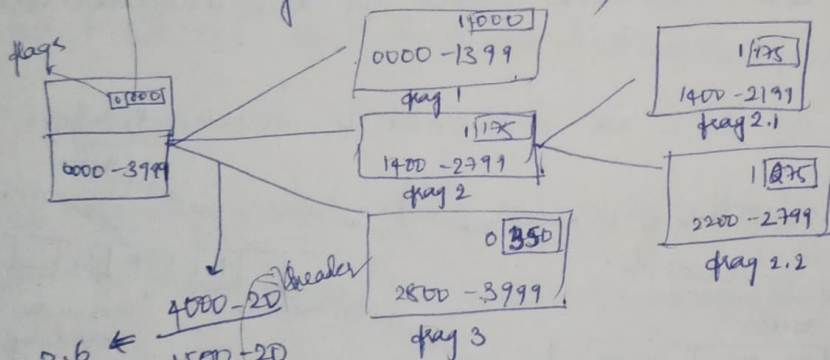 flags
0 000
0000 - 3999
1 000
0000 - 1399
frag 1
1 175
1400 - 2799
frag 2
0 350
2800 - 3999
frag 3
1 175
1400 - 2199
frag 2.1
1 275
2200 - 2799
frag 2.2
4000 - 20
header
1500 - 20